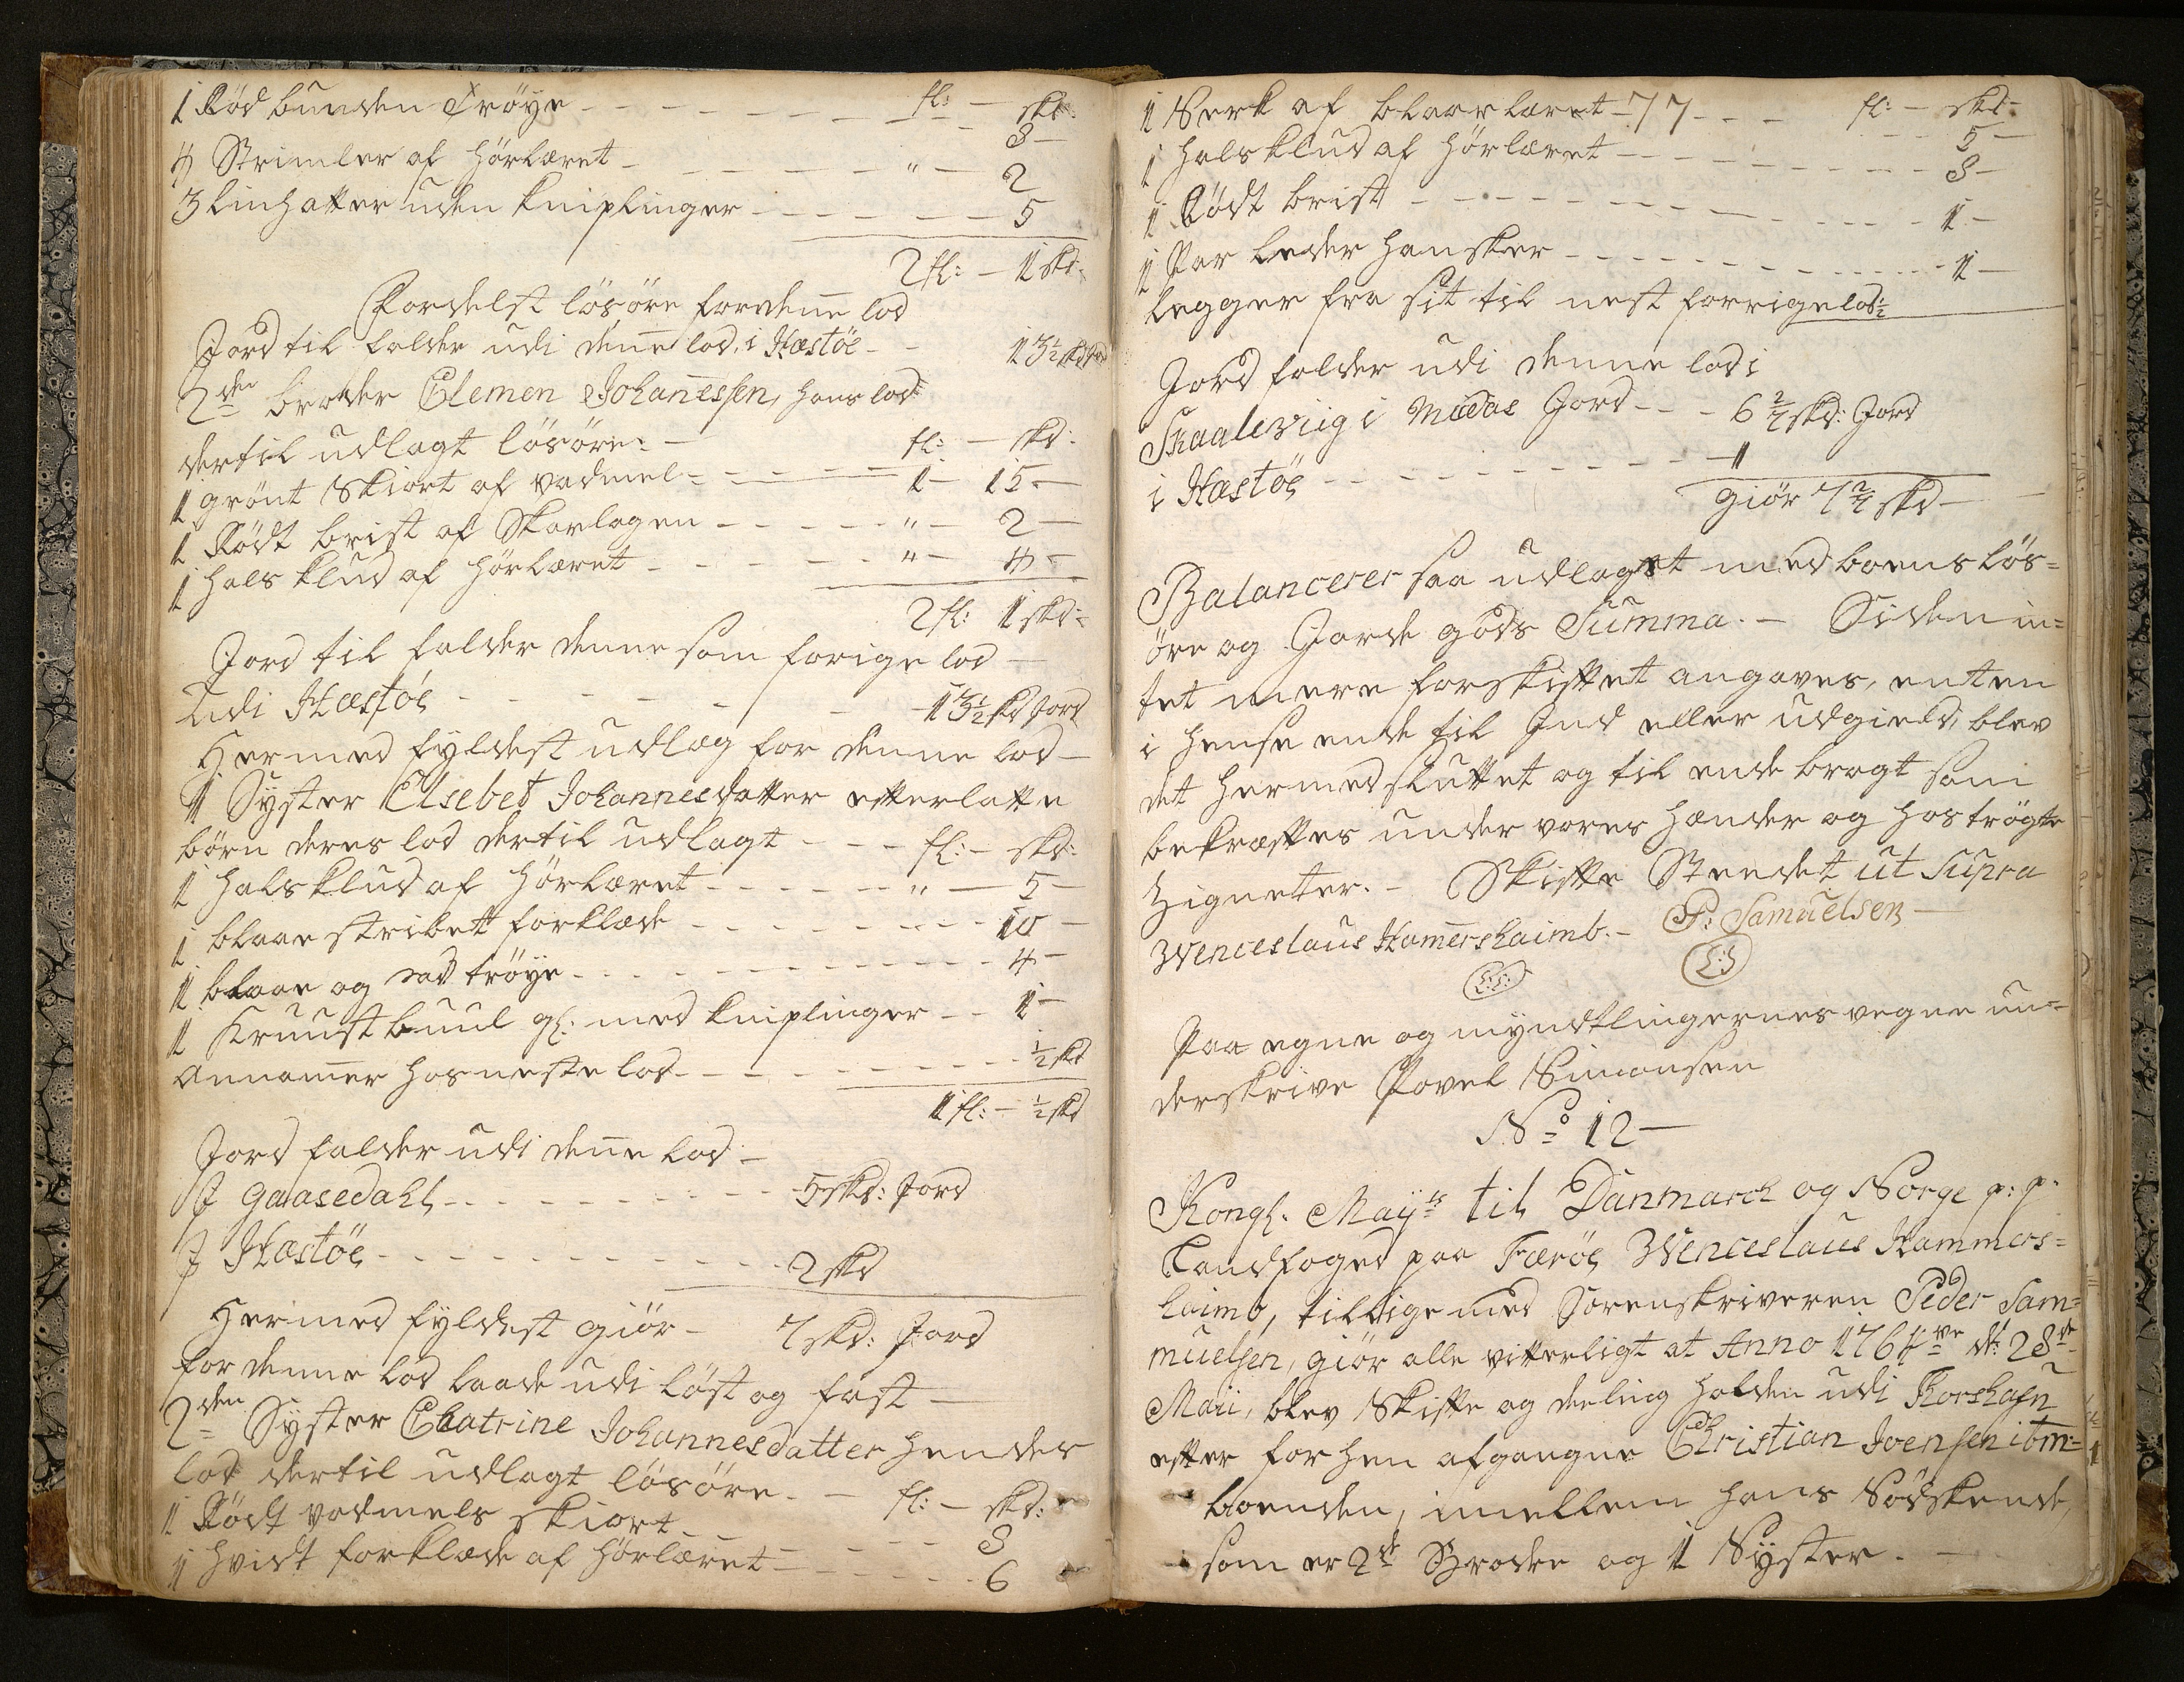 1 Rød bunden Trøye - - - fl: - skd:
8 -
4 Strimler af hørlæret - - - " - 2
3 linhatter uden kniplinger - - - 5
2 fl: - 1 skd:
Fordelst løsøre for denne lod
Jord til falder udi denne lod, i Hæstöe - - 13½ skd Jord
2den broder Clemen Johannesen, hans lod
dertil udlagt løsøre: - fl: - skd:
1 grønt Skiort af vadmel - - - 1 - 15 -
1 Rødt brist af Skarlagen - - - " - 2 -
1 hals klud af hørlæret - - - " - 4 -
2 fl: 1 skd:
Jord til falder denne som forige lod -
Udi Hæstöe - - - 13½ skd Jord
Hermed fyldest udlæg for denne lod -
1 Syster Elsebet Johannesdatter efterlatte
børn deres lod dertil udlagt - - - fl: - skd:
1 halsklud af hørlæret - - - " - 5 -
1 blaae stribett forklæde - - - 10 -
1 blaae og rød trøye - - - 4 -
1 Kruust buul gl: med kniplinger - - 1 -
Annammer hos neste lod - - - ½ skd
1 fl: - ½ skd
Jord falder udi denne lod -
I Gaasedahl - - - 5 skd: Jord
I Hæstöe - - - 2 skd
Hermed fyldest giør - 7 skd: Jord
for denne lod baade udi løst og fast -
2den Syster Chatrine Johannesdatter hendes
lod dertil udlagt løsøre - - fl: - skd:
1 Rødt vadmels skiort - - - 8
1 hvidt forklæde af hørlæret - - - 6
1 Serk af blaarlæret - 77 - - - fl: - skd:
5 -
1 halsklud af hørlæret - - - 8 -
1 Rødt brist - - - 1 -
1 Par leder hansker - - - 1 -
legger fra sit til nest forrige lod ½
Jord falder udi denne lod i
Skaalevüg i Midas Jord - - - 6 2/7 skd: Jord
i Hæstöe - - - 1
giør 7 2/7 skd -
Balancerer saa udlagt med boens løs-
øre og Jorde gods Summa. - Siden in-
tet mere for skiftet angaves, enten
i hense ende til Ind eller udgield, blev
det hermed sluttet og til ende bragt som
bekræftes under vores hænder og hoströgte
Zigneter. - Skifte Stædet ut Supra
Wenceslaus Hamershaimb. - P: Samuelsen -
L:S: L:S
Paa egne og myndtlingernes vegne un-
derskrive Povel Simonsen
No 12 -
Kongl. Mayts til Danmarch og Norge p: p.
Landfoged paa Færöe Wenceslaus Hammers-
haimb, tillige med Sorenskriveren Peder Sam-
muelsen, giør alle vitterligt at Anno 1764ve d: 28de
Maii, blev Skifte og deeling holden udi Thorshafn
efter forhen afgangne Christian Joensen ibm:
boenden, imellem hans Sødskende,
som er 2de Brodre og 1 Syster. -